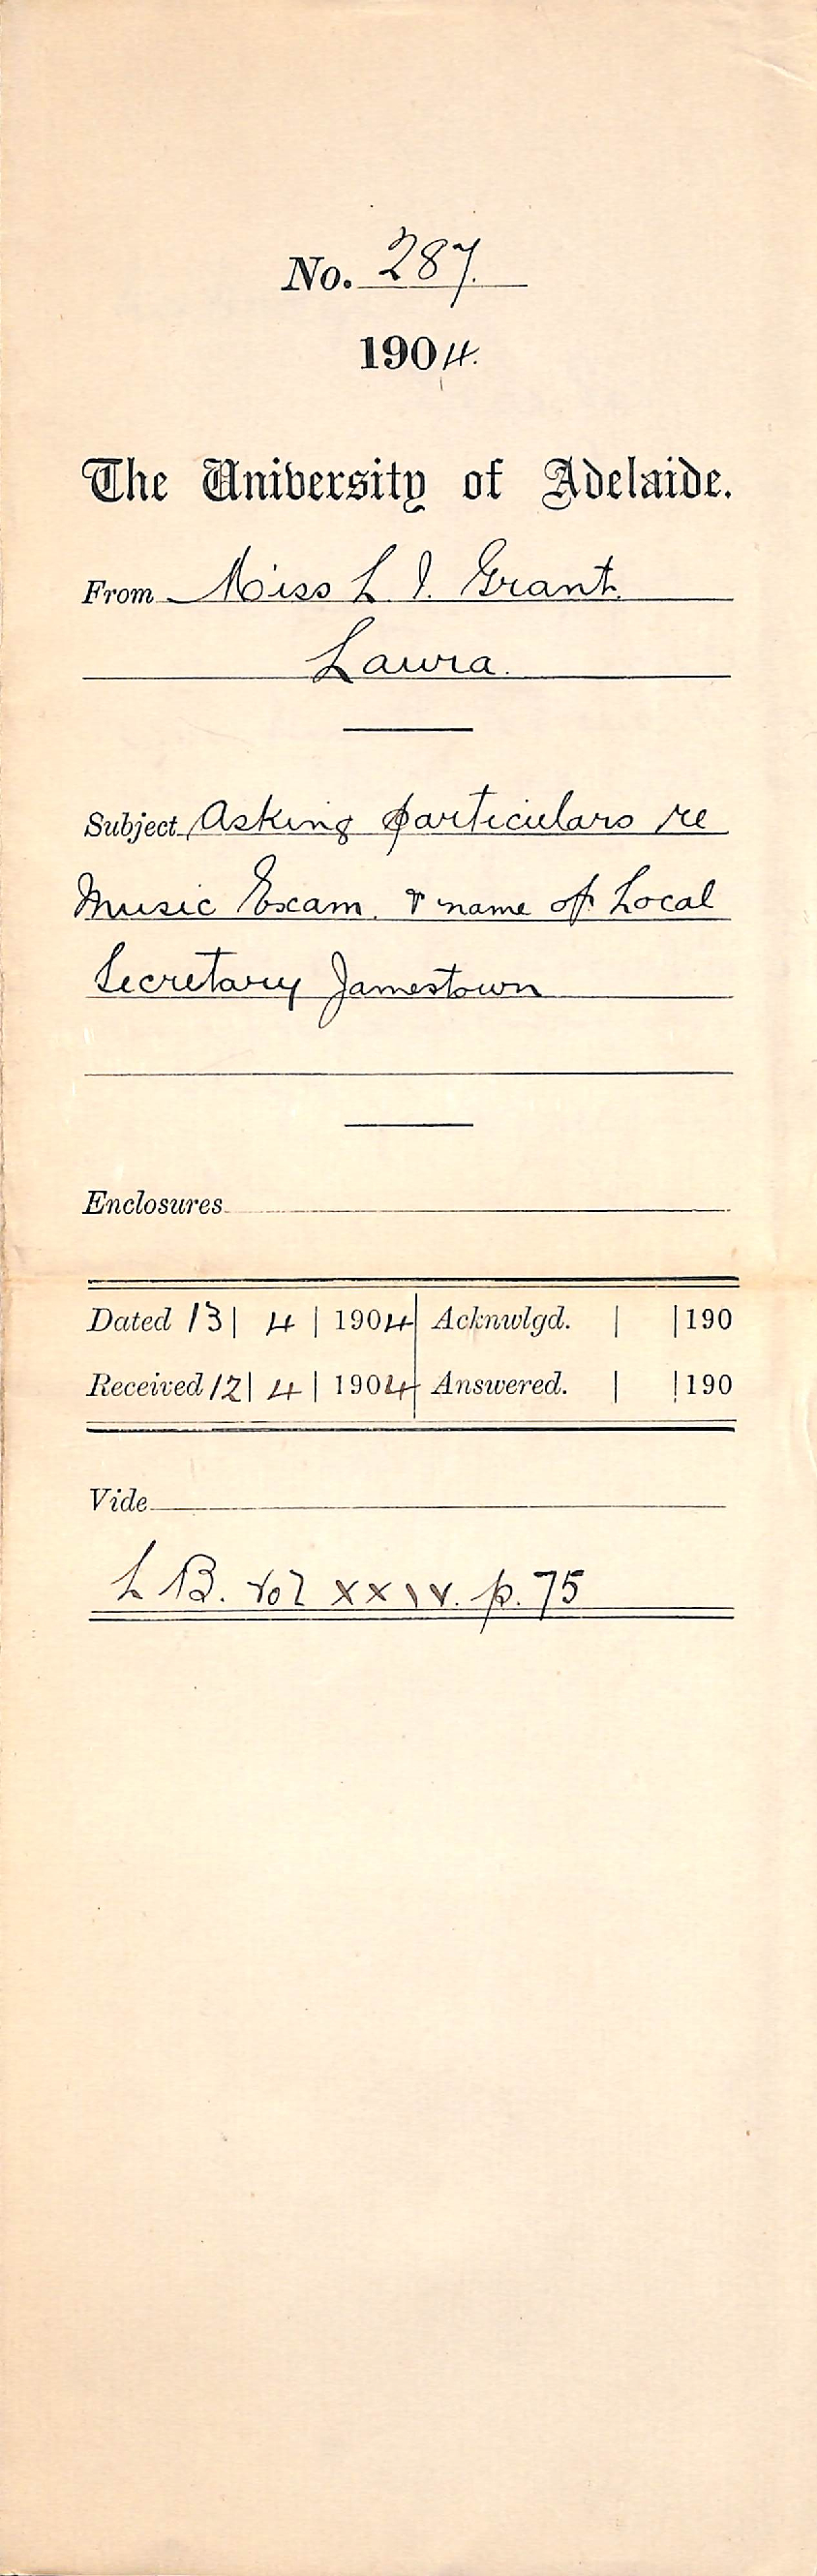 No. 287.
1904.
The University of Adelaide.
From Miss L I. Grant.
Laura.
Subject Asking particulars re
Music Exam. & name of Local
Secretary Jamestown
Enclosures
Dated 13 | 4 | 1904 | Acknwlgd. | | 190
Received 12 | 4 | 1904 | Answered. | | 190
Vide
L B. Vol XXIV. p. 75